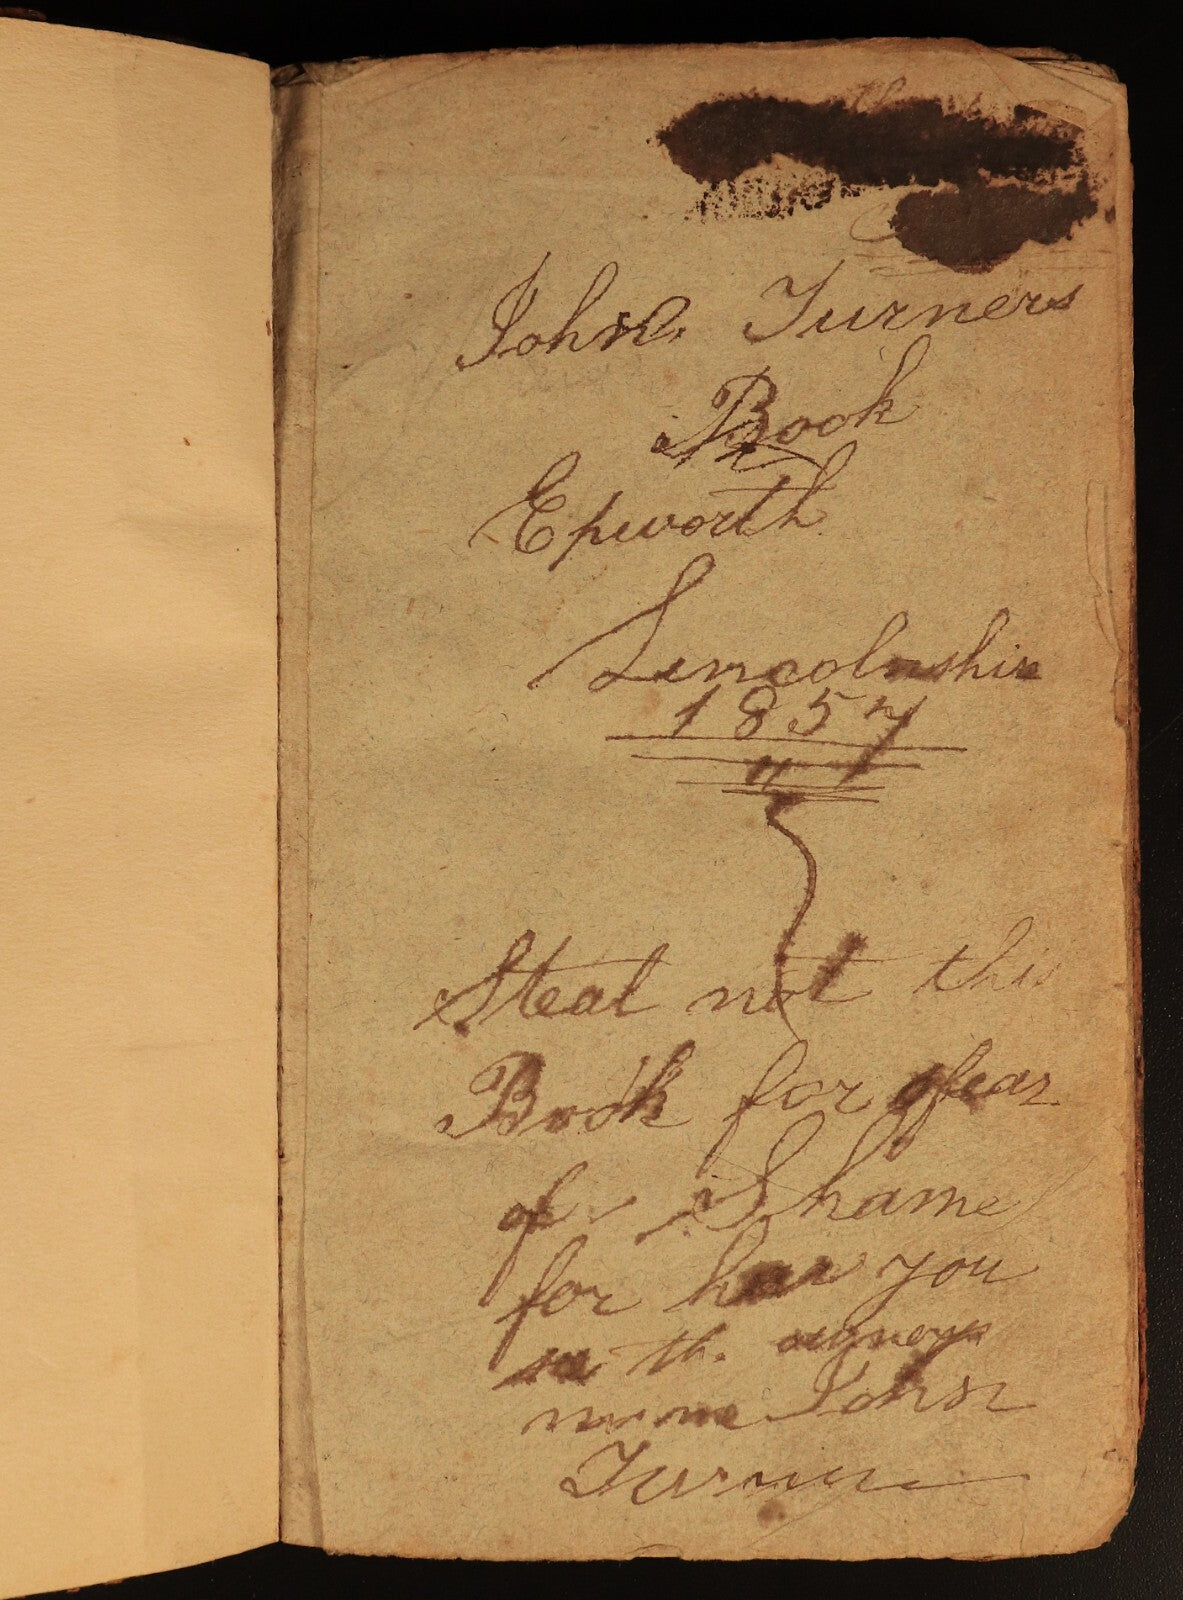 John. Turners
Book
Epworth
Lincolnshire
1857
"
Steal not this
Book for fear
of Shame
for hear you
se th. owners
name John
Turner